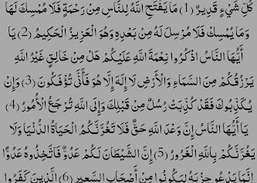 كُلِّ شَيْءٍ قَدِيرٌ (1) مَا يَفْتَحِ اللَّهُ لِلنَّاسِ مِنْ رَحْمَةٍ فَلَا مُمْسِكَ لَهَا
وَمَا يُمْسِكْ فَلَا مُرْسِلَ لَهُ مِنْ بَعْدِهِ وَهُوَ الْعَزِيزُ الْحَكِيمُ (2) يَا
أَيُّهَا النَّاسُ اذْكُرُوا نِعْمَةَ اللَّهِ عَلَيْكُمْ هَلْ مِنْ خَالِقٍ غَيْرُ اللَّهِ
يَرْزُقُكُمْ مِنَ السَّمَاءِ وَالْأَرْضِ لَا إِلَهَ إِلَّا هُوَ فَأَنَّى تُؤْفَكُونَ (3) وَإِنْ
يُكَذِّبُوكَ فَقَدْ كُذِّبَتْ رُسُلٌ مِنْ قَبْلِكَ وَإِلَى اللَّهِ تُرْجَعُ الْأُمُورُ (4)
يَا أَيُّهَا النَّاسُ إِنَّ وَعْدَ اللَّهِ حَقٌّ فَلَا تَغُرَّنَّكُمُ الْحَيَاةُ الدُّنْيَا وَلَا
يَغُرَّنَّكُمْ بِاللَّهِ الْغَرُورُ (5) إِنَّ الشَّيْطَانَ لَكُمْ عَدُوٌّ فَاتَّخِذُوهُ عَدُوًّا
إِنَّمَا يَدْعُو حِزْبَهُ لِيَكُونُوا مِنْ أَصْحَابِ السَّعِيرِ (6) الَّذِينَ كَفَرُوا